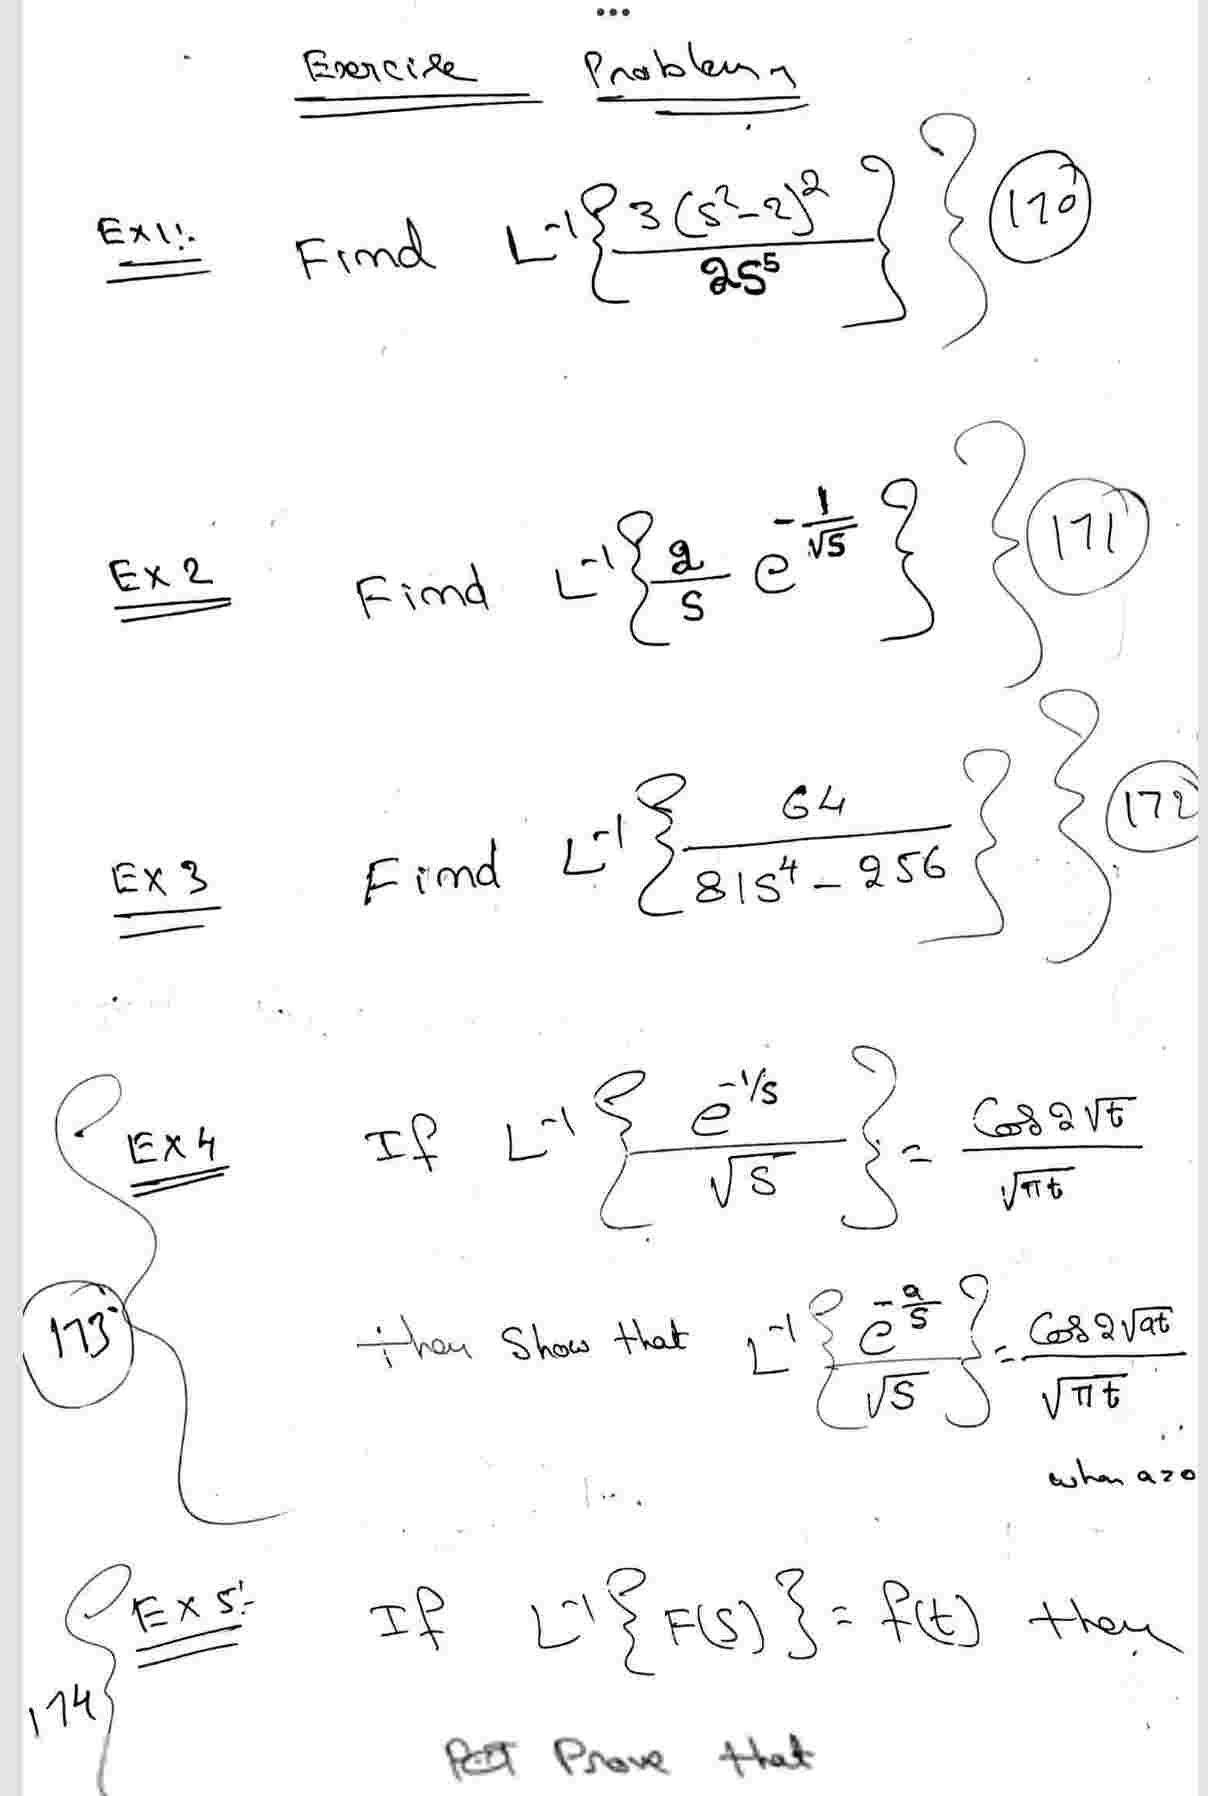 Exercise Problems
Ex1:- Find L⁻¹{3(s²-2)²/2s⁵} } 170
Ex2 Find L⁻¹{2/s e^(-1/√s)} } 171
Ex3 Find L⁻¹{64/(81s⁴-256)} } 172
Ex4 If L⁻¹{e^(-1/s)/√s} = Cos2√t/√πt
173 then Show that L⁻¹{e^(-a/s)/√s} = Cos2√at/√πt
when a>0
Ex5:- If L⁻¹{F(s)} = f(t) then
174
Prove that